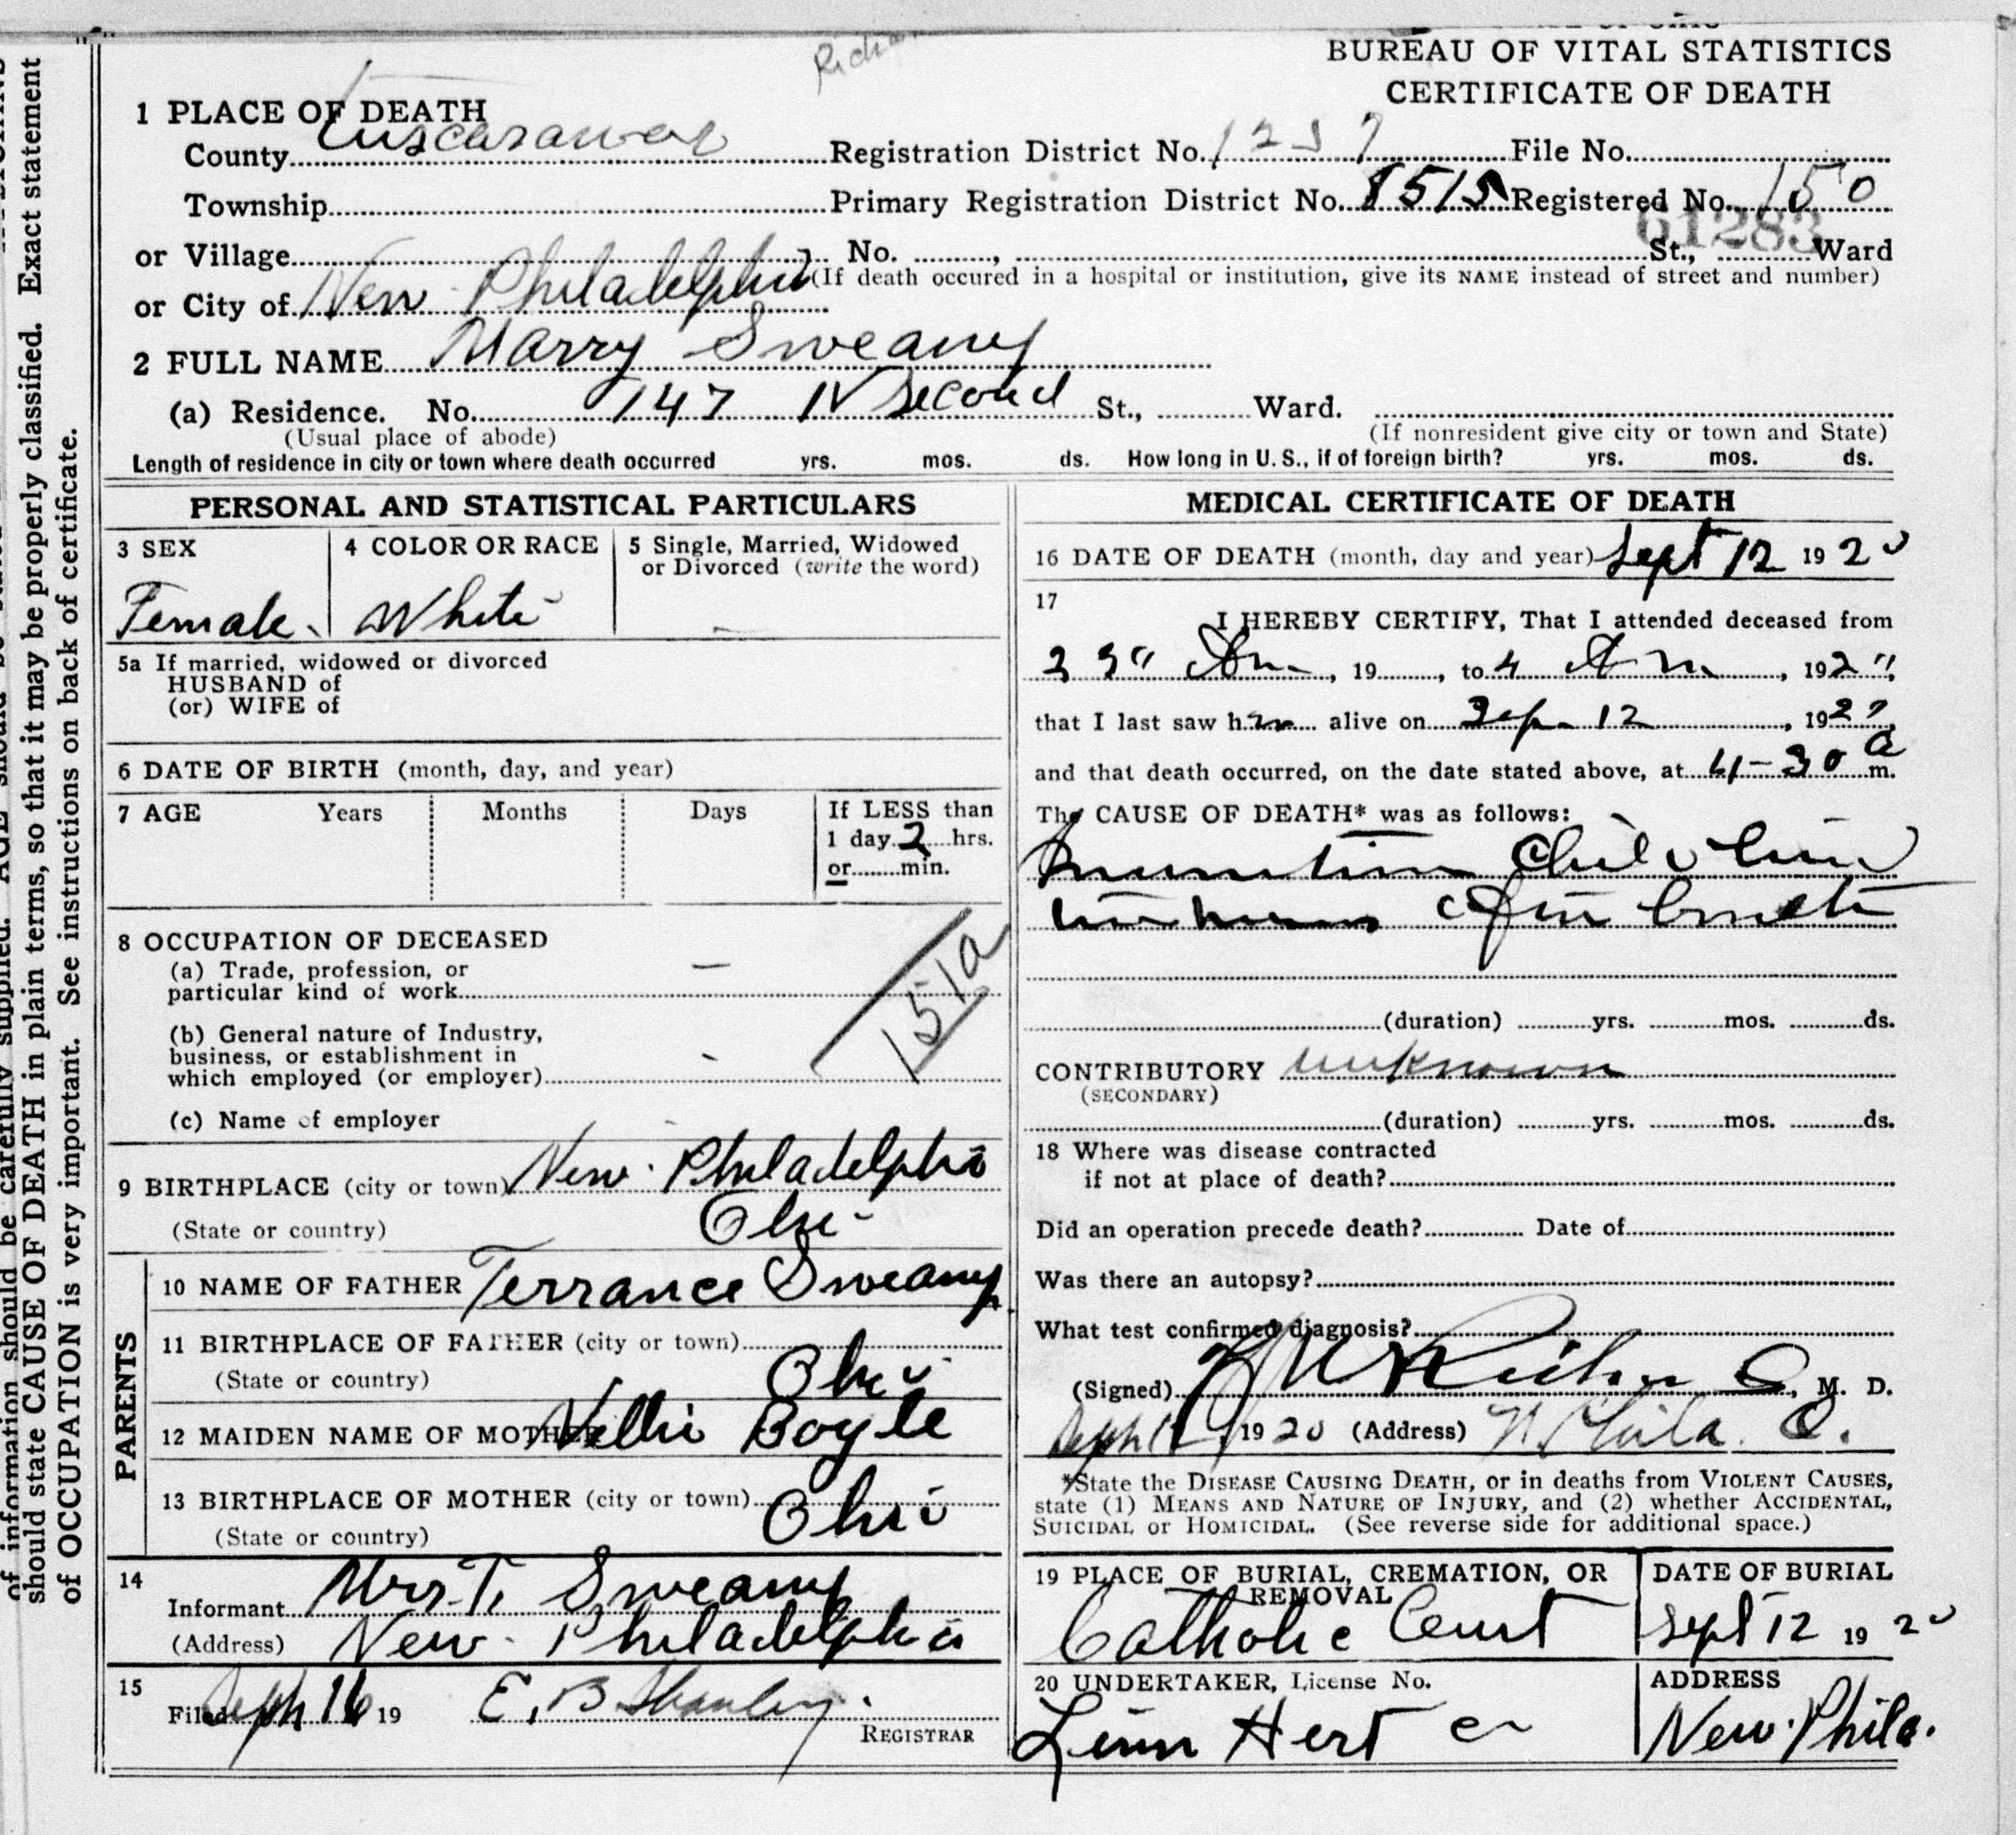 BUREAU OF VITAL STATISTICS
CERTIFICATE OF DEATH
1 PLACE OF DEATH
County Tuscarawas Registration District No. 1237 File No.
Township Primary Registration District No. 8515 Registered No. 150
61283
or Village No. , St., Ward
(If death occured in a hospital or institution, give its NAME instead of street and number)
or City of New Philadelphia
2 FULL NAME Marry Sweany
(a) Residence. No. 147 N Second St., Ward.
(Usual place of abode) (If nonresident give city or town and State)
Length of residence in city or town where death occurred yrs. mos. ds. How long in U. S., if of foreign birth? yrs. mos. ds.
PERSONAL AND STATISTICAL PARTICULARS
3 SEX
Female
4 COLOR OR RACE
White
5 Single, Married, Widowed
or Divorced (write the word)
5a If married, widowed or divorced
HUSBAND of
(or) WIFE of
6 DATE OF BIRTH (month, day, and year)
7 AGE Years Months Days If LESS than
1 day 2 hrs.
or min.
8 OCCUPATION OF DECEASED
(a) Trade, profession, or
particular kind of work
151a
(b) General nature of Industry,
business, or establishment in
which employed (or employer)
(c) Name of employer
9 BIRTHPLACE (city or town) New Philadelphia
(State or country) Ohio
PARENTS
10 NAME OF FATHER Terrance Sweany
11 BIRTHPLACE OF FATHER (city or town)
(State or country) Ohio
12 MAIDEN NAME OF MOTHER Nellie Boyle
13 BIRTHPLACE OF MOTHER (city or town)
(State or country) Ohio
14
Informant Mrs. T. Sweany
(Address) New Philadelphia
15
Filed Sept 16 19 E. B. Shanley
REGISTRAR
MEDICAL CERTIFICATE OF DEATH
16 DATE OF DEATH (month, day and year) Sept 12 1920
17
I HEREBY CERTIFY, That I attended deceased from
, 19 , to 4 Am , 192
that I last saw h alive on Sep 12 , 192
and that death occurred, on the date stated above, at 4-30 a m.
The CAUSE OF DEATH* was as follows:
Child
(duration) yrs. mos. ds.
CONTRIBUTORY unknown
(SECONDARY)
(duration) yrs. mos. ds.
18 Where was disease contracted
if not at place of death?
Did an operation precede death? Date of
Was there an autopsy?
What test confirmed diagnosis?
(Signed) , M. D.
Sept 1920 (Address) N. Phila. O.
*State the DISEASE CAUSING DEATH, or in deaths from VIOLENT CAUSES,
state (1) MEANS AND NATURE OF INJURY, and (2) whether ACCIDENTAL,
SUICIDAL or HOMICIDAL. (See reverse side for additional space.)
19 PLACE OF BURIAL, CREMATION, OR
REMOVAL
Catholic
DATE OF BURIAL
Sept 12 1920
20 UNDERTAKER, License No.
Linn Hert
ADDRESS
New Phila.
should state CAUSE OF DEATH in plain terms, so that it may be properly classified. Exact statement
of OCCUPATION is very important. See instructions on back of certificate.